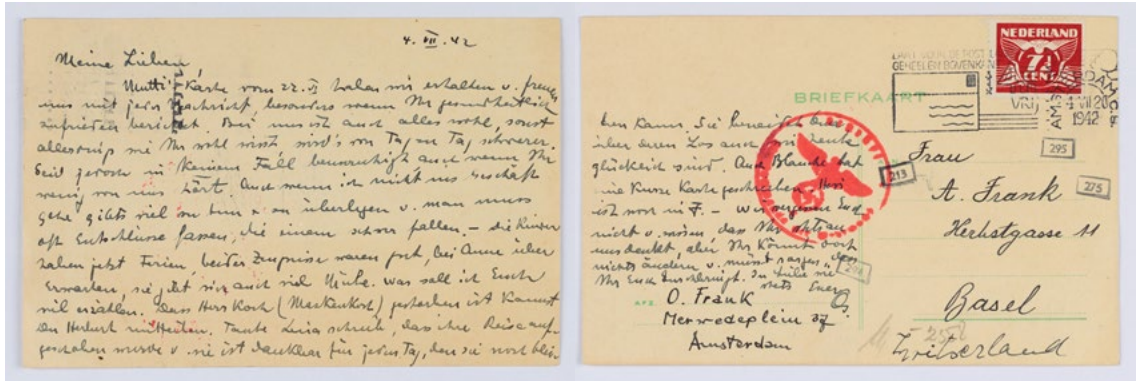 4. VII. 42
Meine Lieben,
Mutti's Karte vom 22. VI haben wir erhalten u. freuen
uns mit jeder Nachricht, besonders wenn Ihr gesundheitlich
zufrieden berichtet. Bei uns ist auch alles wohl, sonst
allerdings wie Ihr wohl wisst, wird's von Tag zu Tag schwerer.
Seid jedoch in keinem Fall beunruhigt auch wenn Ihr
wenig von uns hört. Auch wenn ich nicht ins Geschäft
gehe gibts viel zu tun u. zu überlegen u. man muss
oft Entschlüsse fassen, die einem schwer fallen. – die Kinder
haben jetzt Ferien, beider Zeugnisse waren gut, bei Anne über
Erwarten, sie gibt sich auch viel Mühe. Was soll ich Euch
viel erzählen. Dass Herr Koch gestorben ist kannst
Du Herbert mitteilen. Tante schrieb, dass ihre Reise auf-
geschoben wurde u. sie ist dankbar für jeden Tag, den sie noch blei-
ben kann. Sie
über deren Los auch wir heute
glücklich sind. Auch Blanche hat
eine kurze Karte geschrieben.
ist noch in F. – Wir vergessen Euch
nicht u. wissen dass Ihr
uns denkt, aber Ihr könnt doch
nichts ändern u. müsst sorgen dass
Ihr Euch durchbringt. In Liebe wie
stets Euer
O.
BRIEFKAART
NEDERLAND
7½
CENT
GEHEELEN BOVENKANT
AMSTERDAM CS
VRIJ
4 VII 20
1942
295
213
275
Frau
A. Frank
Herbstgasse 11
Basel
Zwitserland
AFZ.
O. Frank
Merwedeplein 37
Amsterdam